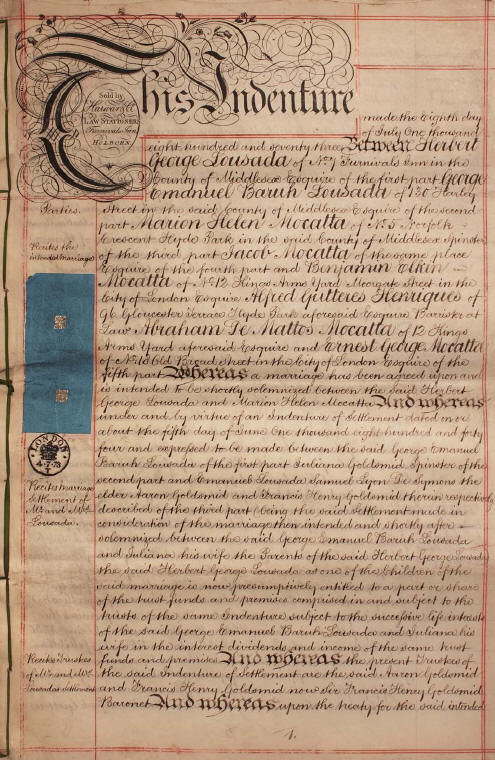 This Indenture
Sold by
LAW STATIONER
Furnivals Inn
HOLBORN.
made the Eighth day
of July One thousand
eight hundred and seventy three Between Herbert
George Lousada of No 7 Furnivals Inn in the
County of Middlesex Esquire of the first part George
Emanuel Baruh Lousada of 130 Harley
Parties.
Street in the said County of Middlesex Esquire of the second
part Marion Helen Mocatta of No 5 Norfolk
Crescent Hyde Park in the said County of Middlesex Spinster
Recites the
intended marriage
of the third part Jacob Mocatta of the same place
Esquire of the fourth part and Benjamin Elkin
Mocatta of No 12 Kings Arms Yard Moorgate Street in the
City of London Esquire Alfred Gutteres Henriques of
96 Gloucester Terrace Hyde Park aforesaid Esquire Barrister at
Law Abraham De Mattos Mocatta of 12 Kings
Arms Yard aforesaid Esquire and Ernest George Mocatta
of No 18 Old Broad Street in the City of London Esquire of the
fifth part Whereas a marriage has been agreed upon and
is intended to be shortly solemnized between the said Herbert
George Lousada and Marion Helen Mocatta And whereas
under and by virtue of an Indenture of Settlement dated in or
about the fifth day of June One thousand eight hundred and forty
LONDON
4.7.73
four and expressed to be made between the said George Emanuel
Baruh Lousada of the first part Juliana Goldsmid Spinster of the
Recites marriage
Settlement of
Mr and Mrs
Lousada.
second part and Emanuel Lousada Samuel Lyon De Symons the
elder Aaron Goldsmid and Francis Henry Goldsmid therein respectively
described of the third part (being the said Settlement made in
consideration of the marriage then intended and shortly after
solemnized between the said George Emanuel Baruh Lousada
and Juliana his wife the Parents of the said Herbert George Lousada
the said Herbert George Lousada as one of the Children of the
said marriage is now presumptively entitled to a part or share
of the trust funds and premises comprised in and subject to the
trusts of the same Indenture subject to the successive life interests
of the said George Emanuel Baruh Lousada and Juliana his
wife in the interest dividends and income of the same trust
Recites Trustees
of Mr and Mrs
Lousadas Settlement
funds and premises And whereas the present Trustees of
the said Indenture of Settlement are the said Aaron Goldsmid
and Francis Henry Goldsmid now Sir Francis Henry Goldsmid
Baronet And whereas upon the treaty for the said intended
1.